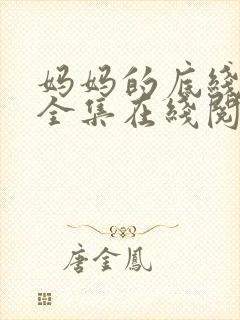 妈妈的底线
全集在线阅
唐金鳳